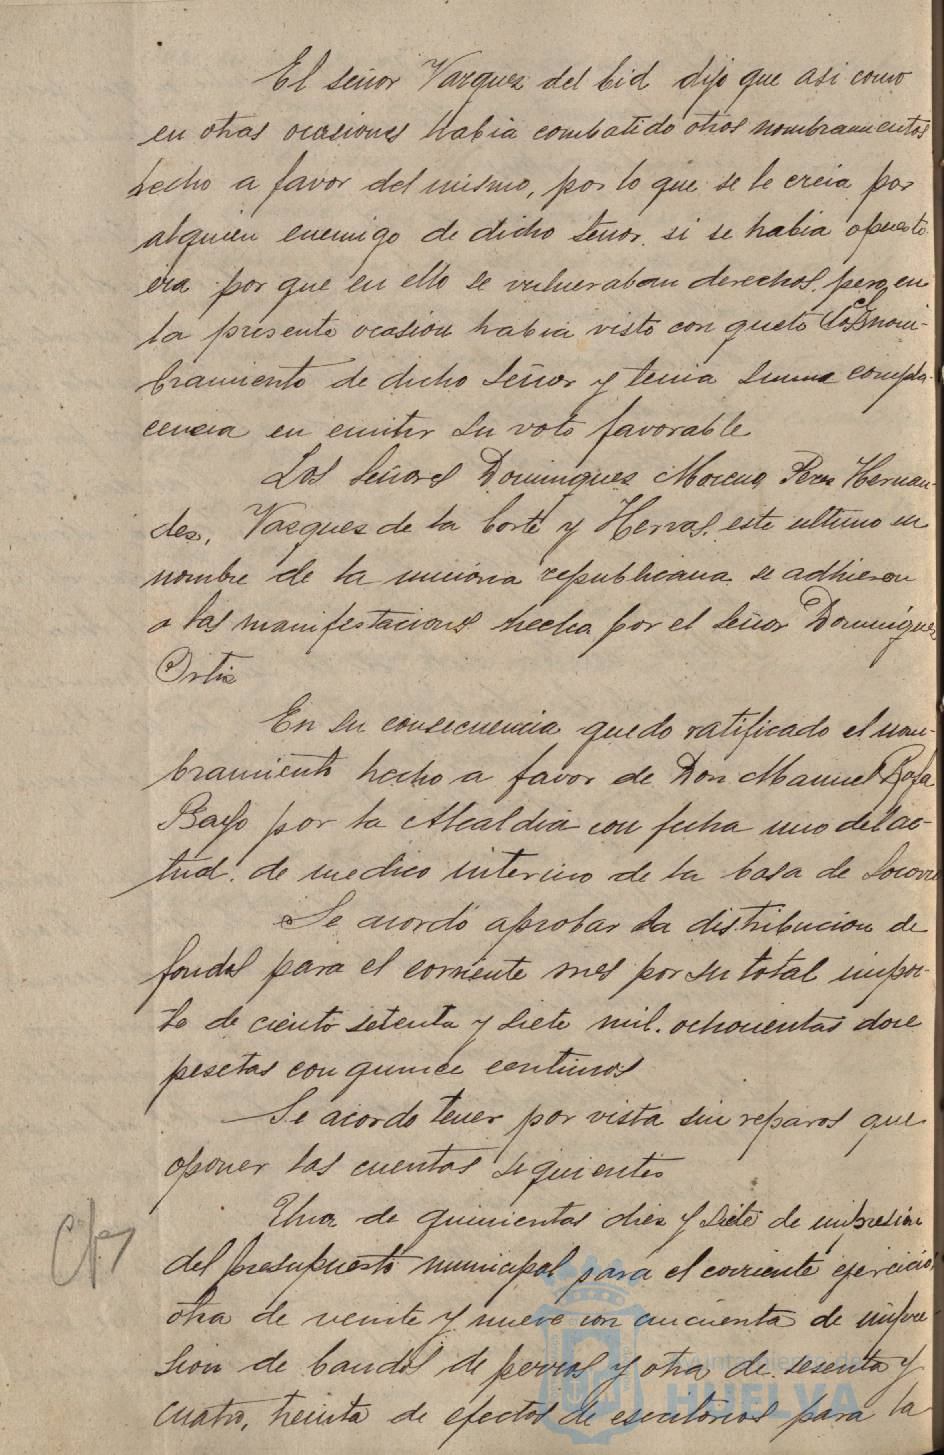 El señor Vazquez del Cid dijo que asi como
en otras ocasiones habia combatido otros nombramientos
hecho a favor del mismo, por lo que se le creia por
alguien enemigo de dicho señor. si se habia opuesto
era por que en ello se vulneraban derechos. pero en
la presente ocasion habia visto con gusto el nom-
bramiento de dicho señor y tenia suma compla-
cencia en emitir su voto favorable
Los señores Dominguez Moreno, Perez Hernan-
dez, Vazquez de la Corte y Hervas. este ultimo en
nombre de la minoria republicana se adhieron
a las manifestaciones hecha por el señor Dominguez
Ortiz
En su consecuencia quedo ratificado el nom-
bramiento hecho a favor de Don Manuel
Bayo por la Alcaldia con fecha uno del ac-
tual. de medico interino de la Casa de Socorro
Se acordó aprobar la distribucion de
fondos para el corriente mes por su total impor-
te de ciento setenta y siete mil. ochocientas doce
pesetas con quince centimos
Se acordo tener por vista sin reparos que
oponer las cuentas siguientes
Una de quinientas diez y siete de impresión
del presupuesto municipal para el corriente ejercicio,
otra de veinte y nueve con cincuenta de impre-
sion de bandos de perros y otra de sesenta y
cuatro, treinta de efectos de escritorios para la
Ayuntamiento de
HUELVA